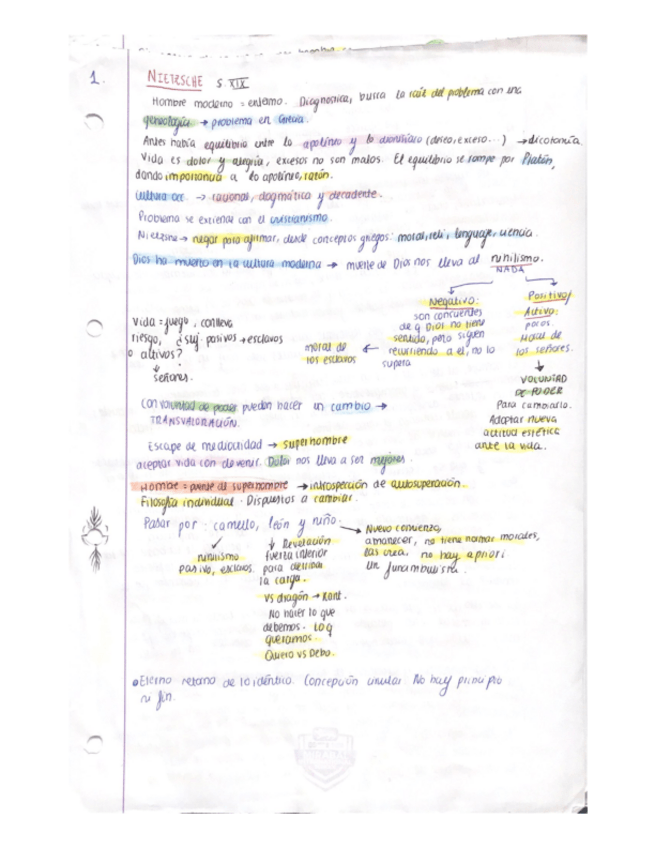 1.
NIETZSCHE S. XIX
Hombre moderno = enfermo. Diagnostica, busca la raíz del problema con una
genealogía → problema en Grecia.
Antes había equilibrio entre lo apolíneo y lo dionisíaco (deseo, exceso...) → dicotomía
Vida es dolor y alegría, excesos no son malos. El equilibrio se rompe por Platón,
dando importancia a lo apolíneo, razón.
Cultura occ. → racional, dogmática y decadente.
Problema se extiende con el cristianismo.
Nietzsche → negar para afirmar, desde conceptos griegos: moral, reli, lenguaje, ciencia.
Dios ha muerto en la cultura moderna → muerte de Dios nos lleva al nihilismo.
NADA
Negativo:
son concientes
de q Dios no tiene
sentido, pero siguen
recurriendo a el, no lo
supera
moral de
los esclavos
Positivo/
Activo:
pocos.
Moral de
los señores.
VOLUNTAD
DE PODER
Para cambiarlo.
Adoptar nueva
actitud estética
ante la vida.
Vida = juego, conlleva
riesgo, ¿suj. pasivos → esclavos
o activos?
señores.
Con voluntad de poder pueden hacer un cambio →
TRANSVALORACIÓN.
Escape de mediocridad → superhombre
aceptar vida con devenir. Dolor nos lleva a ser mejores.
Hombre = puente al superhombre → introspección de autosuperación.
Filosofía individual. Dispuestos a cambiar.
Pasar por: camello, león y niño:
nihilismo
pasivo, esclavos.
Revelación
fuerza interior
para derribar
la carga.
VS dragón → Kant.
No hacer lo que
debemos. Lo q
queramos.
Quiero vs Debo.
Nuevo comienzo,
amanecer, no tiene normas morales,
las crea. no hay a priori
Un funambulista.
• Eterno retorno de lo idéntico. Concepción circular. No hay principio
ni fin.